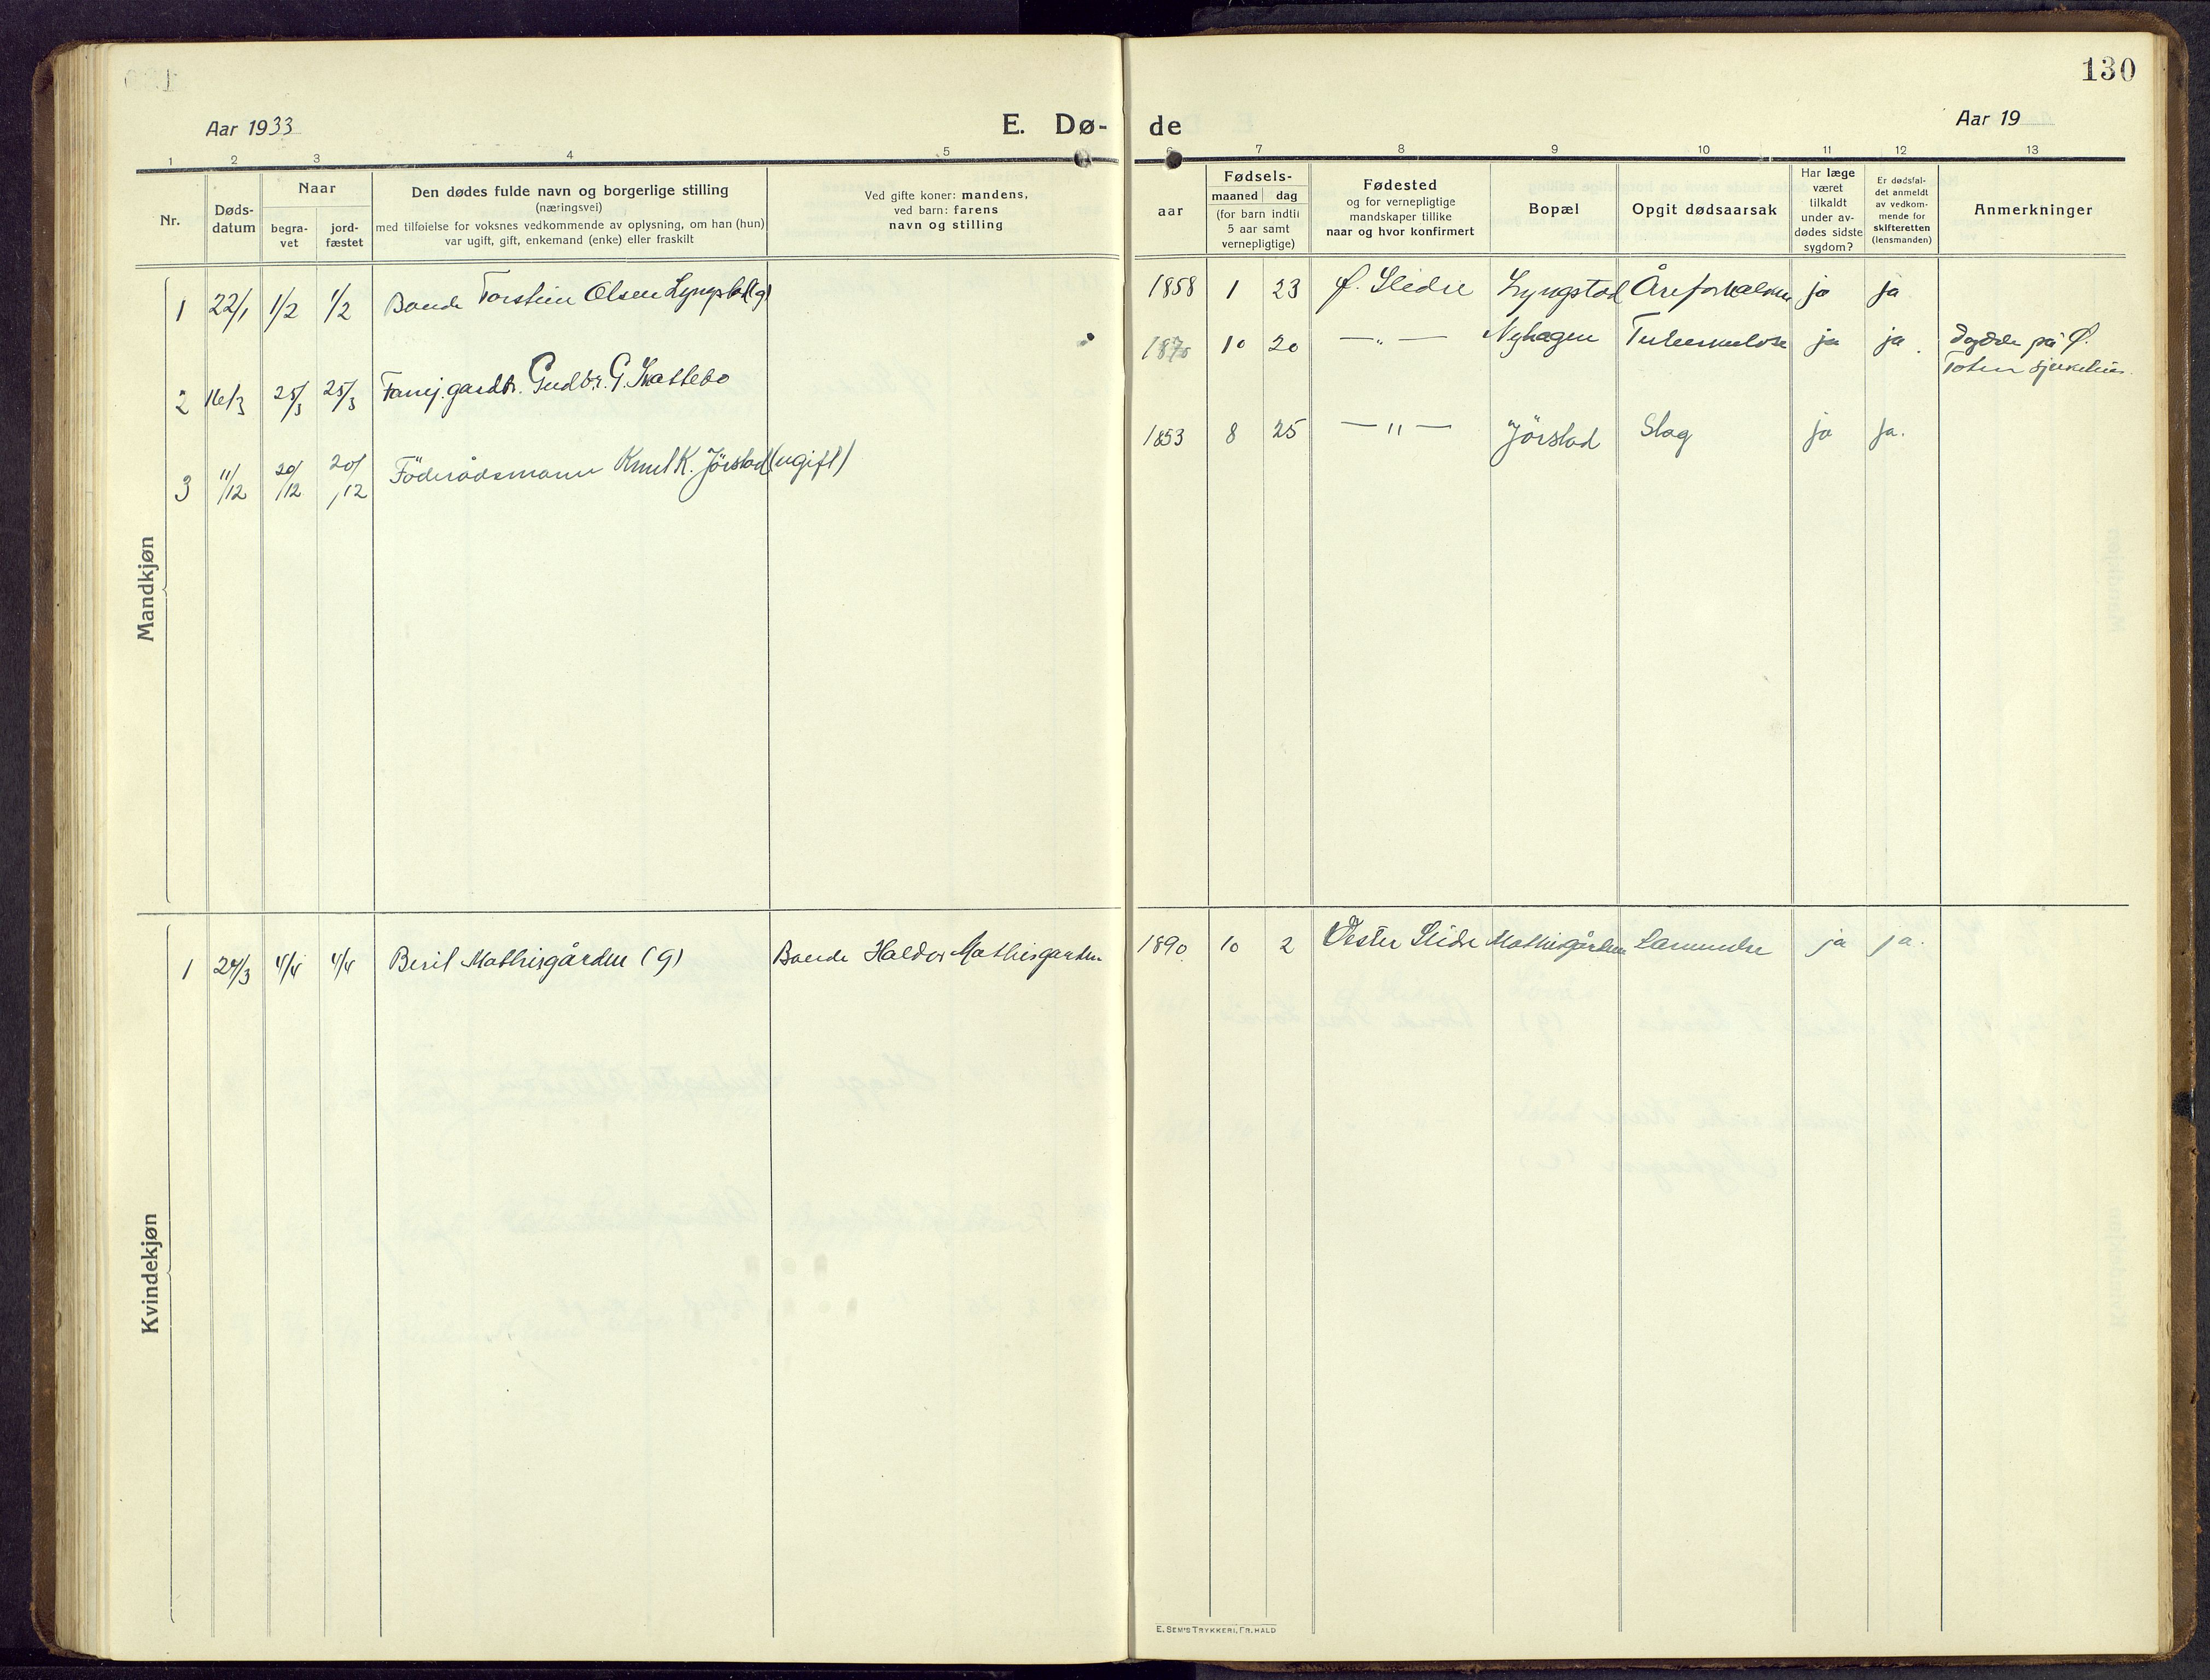 130
Aar 1933
E. Dø-
de
Aar 19
1 2 3 4 5 6 7 8 9 10 11 12 13
Nr.
Døds-
datum
Naar
begra-
vet
jord-
fæstet
Den dødes fulde navn og borgerlige stilling
(næringsvei)
med tilføielse for voksnes vedkommende av oplysning, om han (hun)
var ugift, gift, enkemand (enke) eller fraskilt
Ved gifte koner: mandens,
ved barn: farens
navn og stilling
aar
Fødsels-
maaned dag
(for barn indtil
5 aar samt
vernepligtige)
Fødested
og for vernepligtige
mandskaper tillike
naar og hvor konfirmert
Bopæl
Opgit dødsaarsak
Har læge
været
tilkaldt
under av-
dødes sidste
sygdom?
Er dødsfal-
det anmeldt
av vedkom-
mende for
skifteretten
(lensmanden)
Anmerkninger
Mandkjøn
1 22/1 1/2 1/2 Bonde Torstein Olsen Lyngstad (g) 1858 1 23 Ø. Slidre Lyngstad Åreforkalkn ja ja
2 16/3 25/3 25/3 Gudbr. G. Kattebo 1870 10 20 —"— Nyhagen Tuberkulose ja ja. Døde på Ø.
Toten sjukehus.
3 11/12 20/12 20/12 Föderådsmann Knut K. Jörstad (ugift) 1853 8 25 —"— Jörstad Slag ja ja.
Kvindekjøn
1 24/3 4/4 4/4 Berit Mathisgården (g) Bonde Haldor Mathisgarden 1890 10 2 Vester Slidre Mathisgården ja ja.
E. SEM'S TRYKKERI, FR. HALD